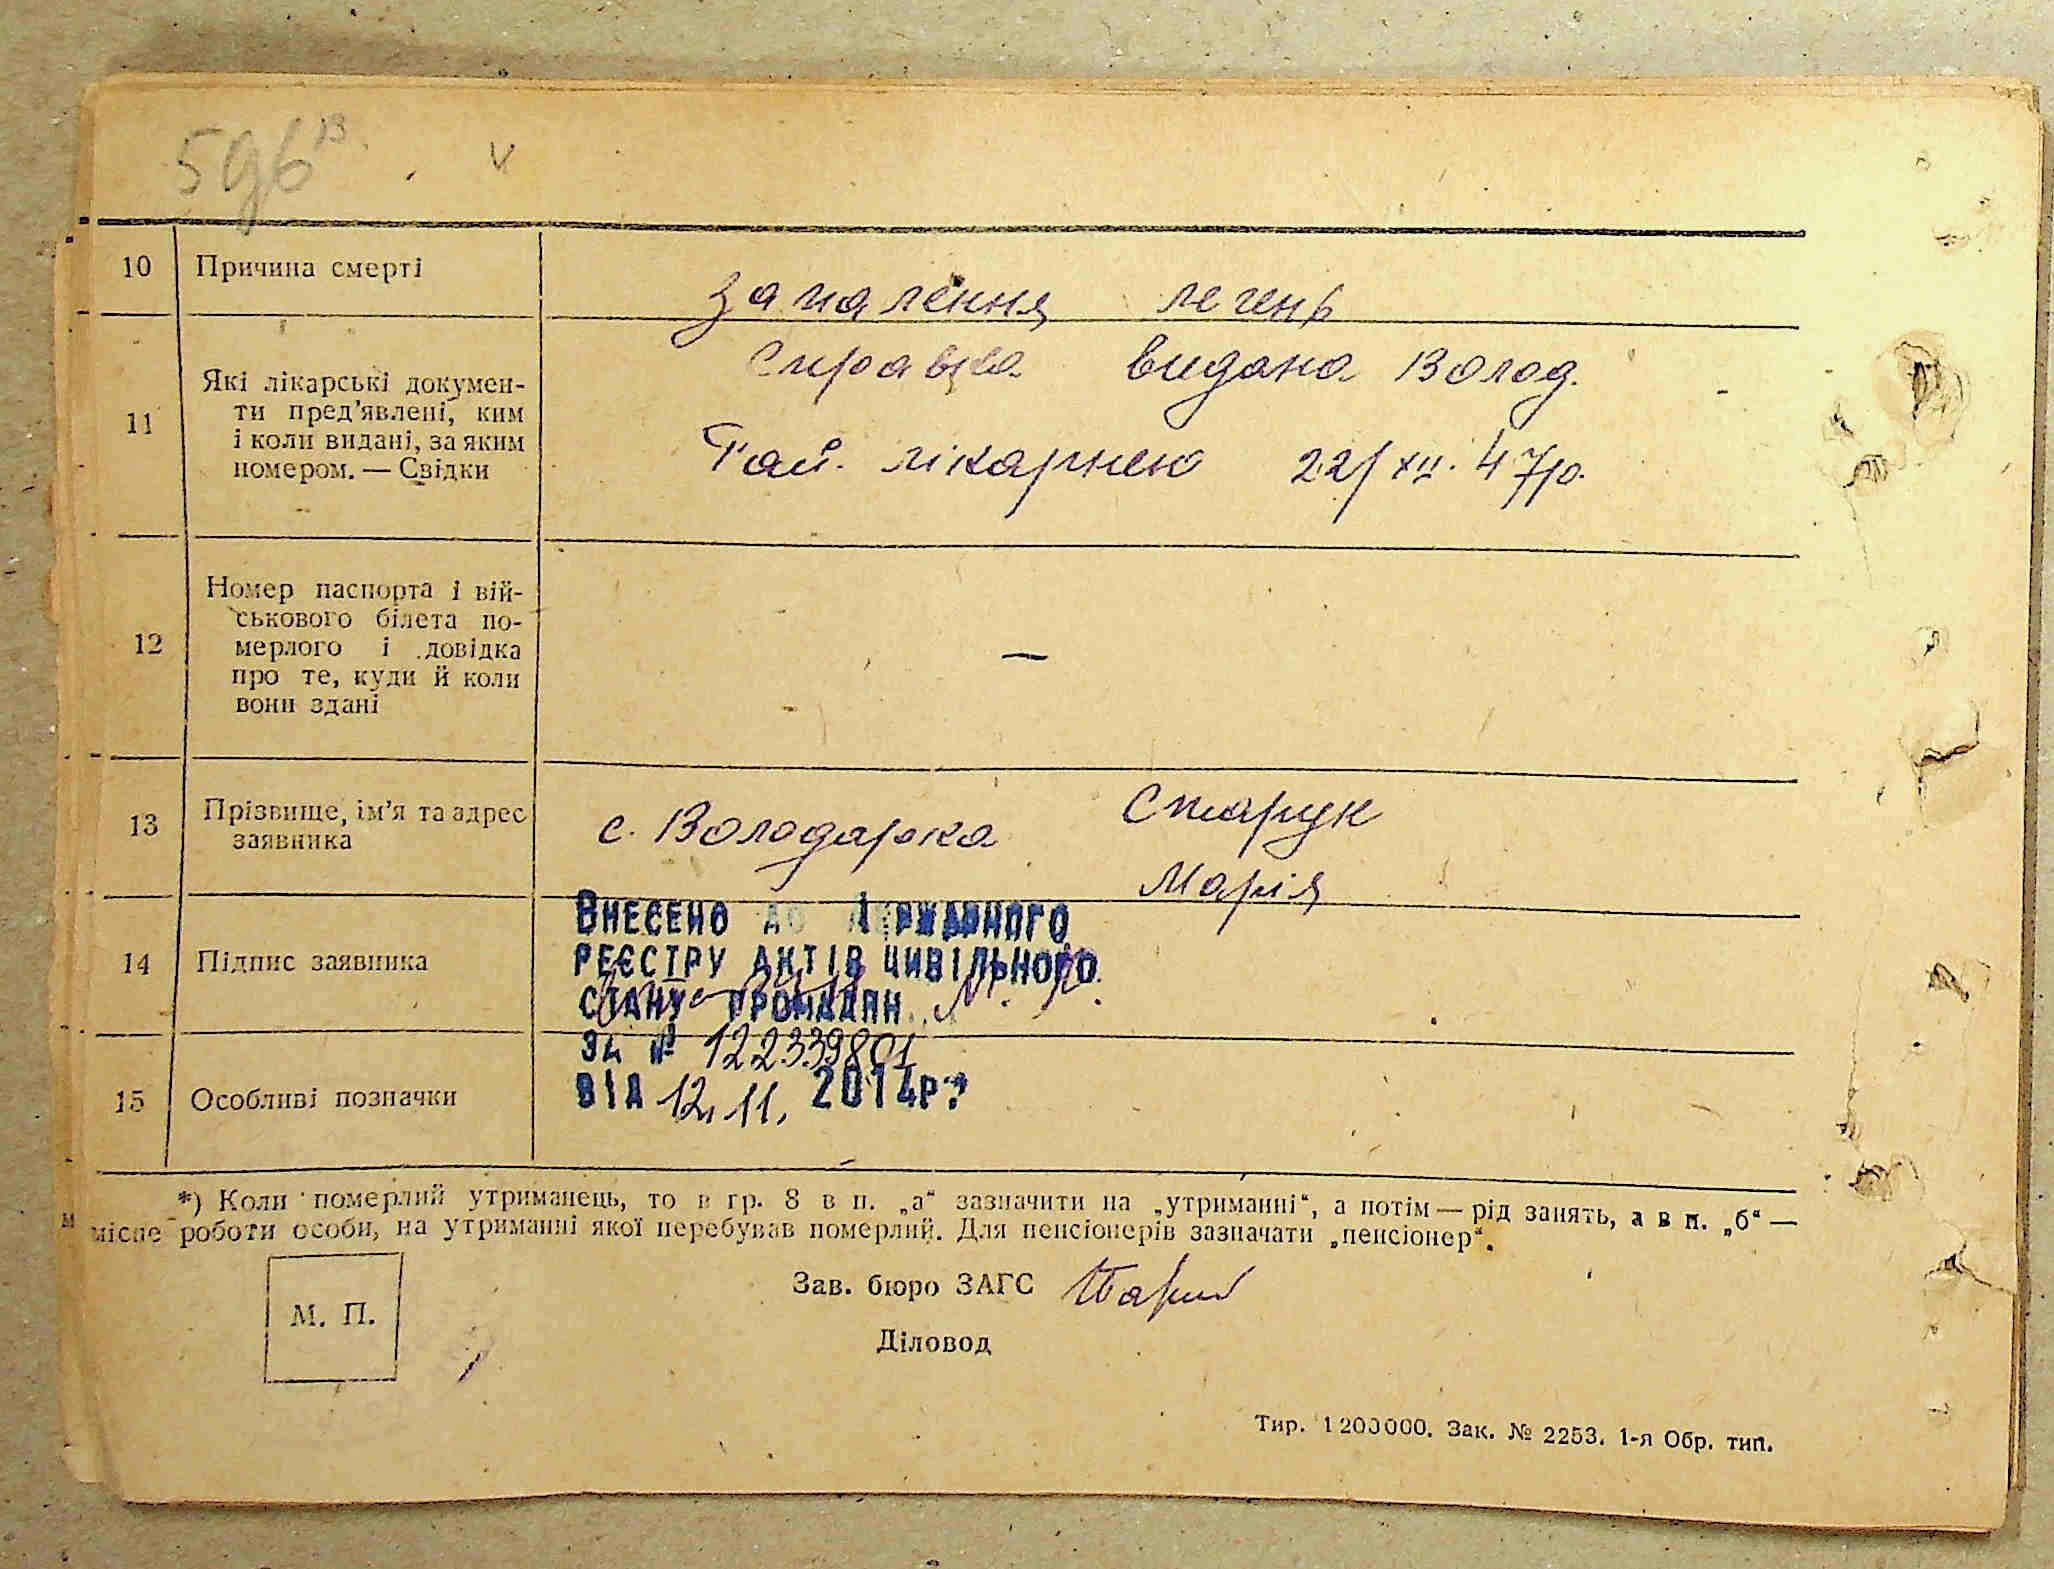 596 В
V
10 Причина смерті
запалення легень
11 Які лікарські докумен-
ти пред’явлені, ким
і коли видані, за яким
номером. — Свідки
Справка видана Волод.
Рай. лікарнею 22/XII. 47р.
12 Номер паспорта і вій-
ськового білета по-
мерлого і довідка
про те, куди й коли
вони здані
—
13 Прізвище, ім’я та адрес
заявника
с. Володарка Старук
Марія
14 Підпис заявника
Внесено до Державного
реєстру актів цивільного
стану громадян
за № 122339801
15 Особливі позначки
від 12.11. 2014р.
*) Коли померлий утриманець, то в гр. 8 в п. „а“ зазначити на „утриманні“, а потім — рід занять, а в п. „б“ —
місце роботи особи, на утриманні якої перебував померлий. Для пенсіонерів зазначати „пенсіонер“.
Зав. бюро ЗАГС
М. П.
Діловод
Тир. 1200000. Зак. № 2253. 1-я Обр. тип.